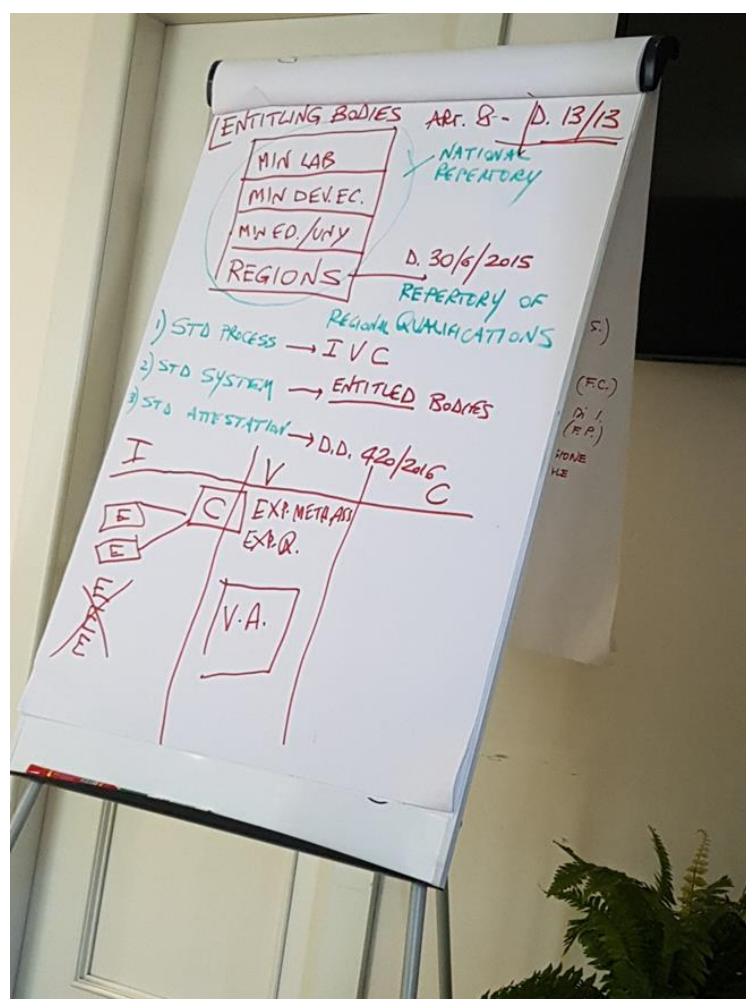 ENTITLING BODIES ART. 8- D. 13/13
MIN LAB
NATIONAL
REPERTORY
MIN DEV.EC.
MIN ED./UNY
REGIONS → D. 30/6/2015
REPERTORY OF
REGIONAL QUALIFICATIONS
1) STD PROCESS → I V C
2) STD SYSTEM → ENTITLED BODIES
3) STD ATTESTATION → D.D. 420/2016
I V C
E C EXP. METH. ASS
E EXP. Q.
V.A.
S.)
(F.C.)
DI 1.
(F.P.)